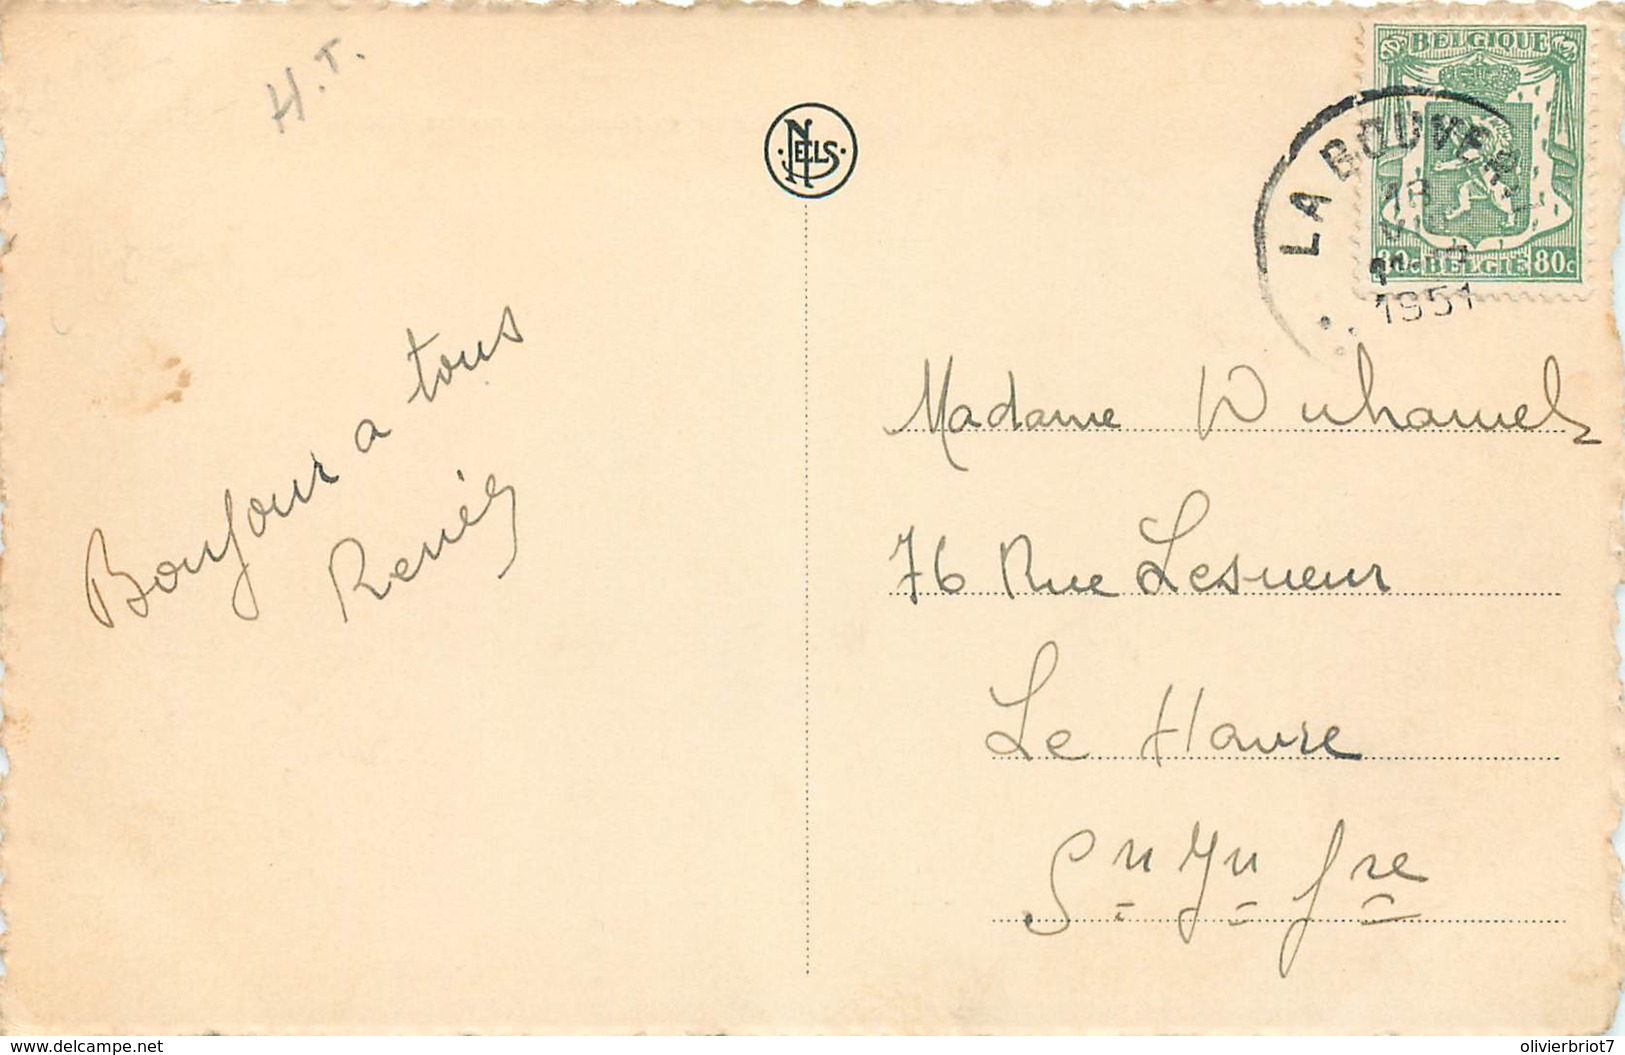 H.T.
NELS
BELGIQUE
80c BELGIË 80c
LA BOUVERIE
18
VII
1951
Bonjour a tous
Renée
Madame Duhamel
76 Rue Lesueur
Le Havre
Sⁿ Iⁿ fʳᵉ
www.delcampe.net
olivierbriot7